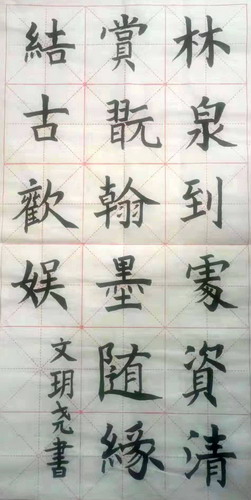 林泉到處資清
賞翫翰墨随緣
結古歡娱
文玥尧書